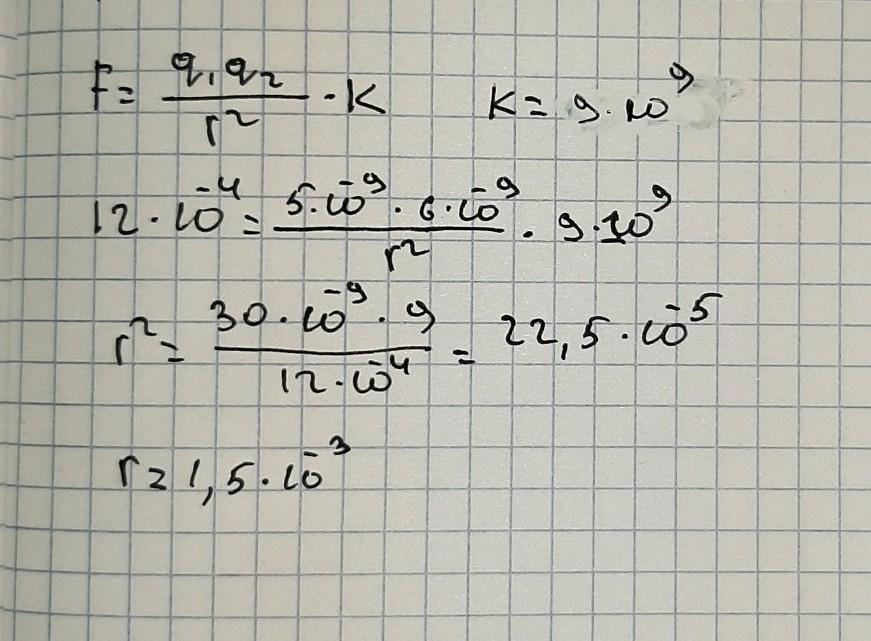 F = q₁q₂ / r² · K K = 9·10⁹
12·10⁻⁴ = 5·10⁻⁹ · 6·10⁻⁹ / r² · 9·10⁹
r² = 30·10⁻⁹ · 9 / 12·10⁻⁴ = 22,5·10⁻⁵
r = 1,5·10⁻³